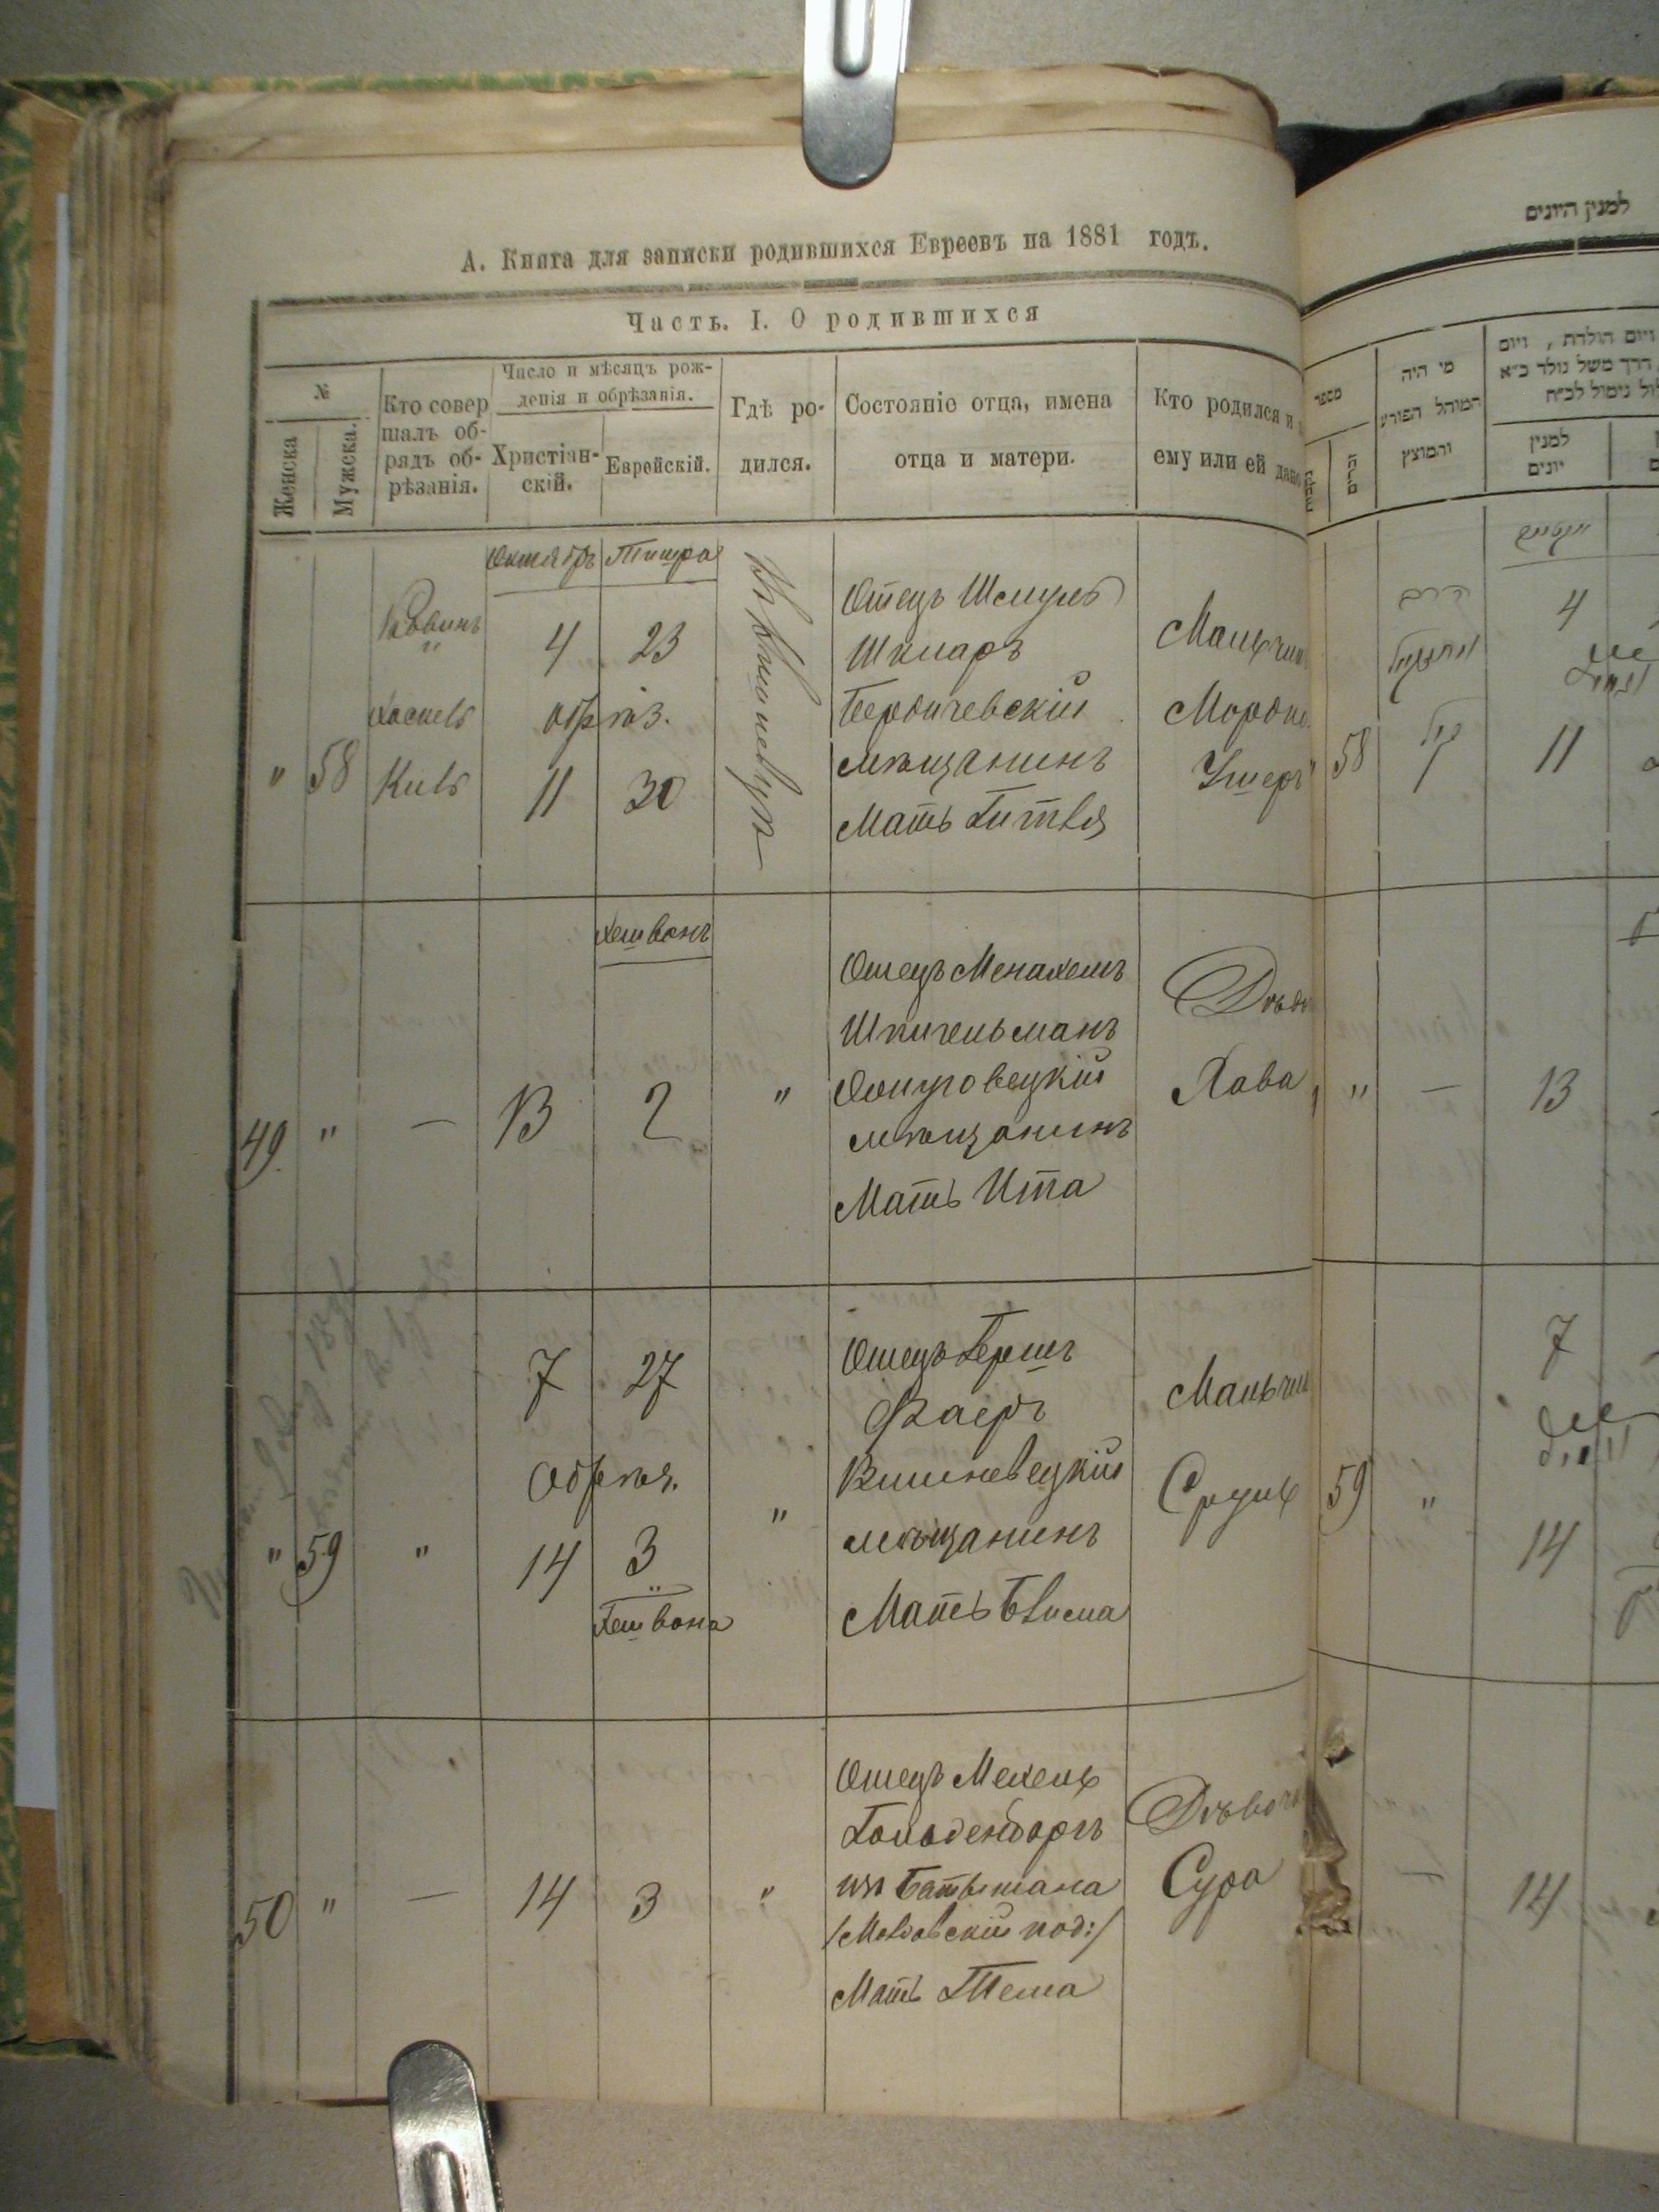 А. Книга для записки родившихся Евреевъ на 1881 годъ.
Часть. I. О родившихся
№
Женска
Мужска.
Кто совер
шалъ об-
рядъ об-
рѣзанія.
Число и мѣсяцъ рож-
денія и обрѣзанія.
Христіан-
скій.
Еврейскій.
Гдѣ ро-
дился.
Состояніе отца, имена
отца и матери.
Кто родился и
ему или ей дано
"
58
Раввинъ
Хаскель
Октябрь
4
обрѣз.
11
Тишра
23
30
Въ Вишневцѣ
Отецъ Шмуль
Шкляръ
Бердичевскій
мѣщанинъ
Мать Гитля
Мальчик
Мордко
Ушеръ
49.
"
—
13
Хешванъ
2
"
Отецъ Менахемъ
мѣщанинъ
Мать Ита
Хава
"
59
"
7
27
Обрѣз.
14
3
Хешвона
"
Отецъ Гершъ
Фаеръ
Вишневецкій
мѣщанинъ
Мать Блима
Мальчик
Сруль
50
"
—
14
3
"
Отецъ Мехель
Гольденбаргъ
изъ Батышана
/Молдавскій под:/
Мать Тема
Дѣвоч
Сура
למנין היונים
מספר
זכרים
מי היה
המוהל הפורע
והמוצץ
ויום הולדת , ויום
דרך משל נולד כ״א
למנין
יונים
58
4
11
"
—
13
59
"
7
14
—
14